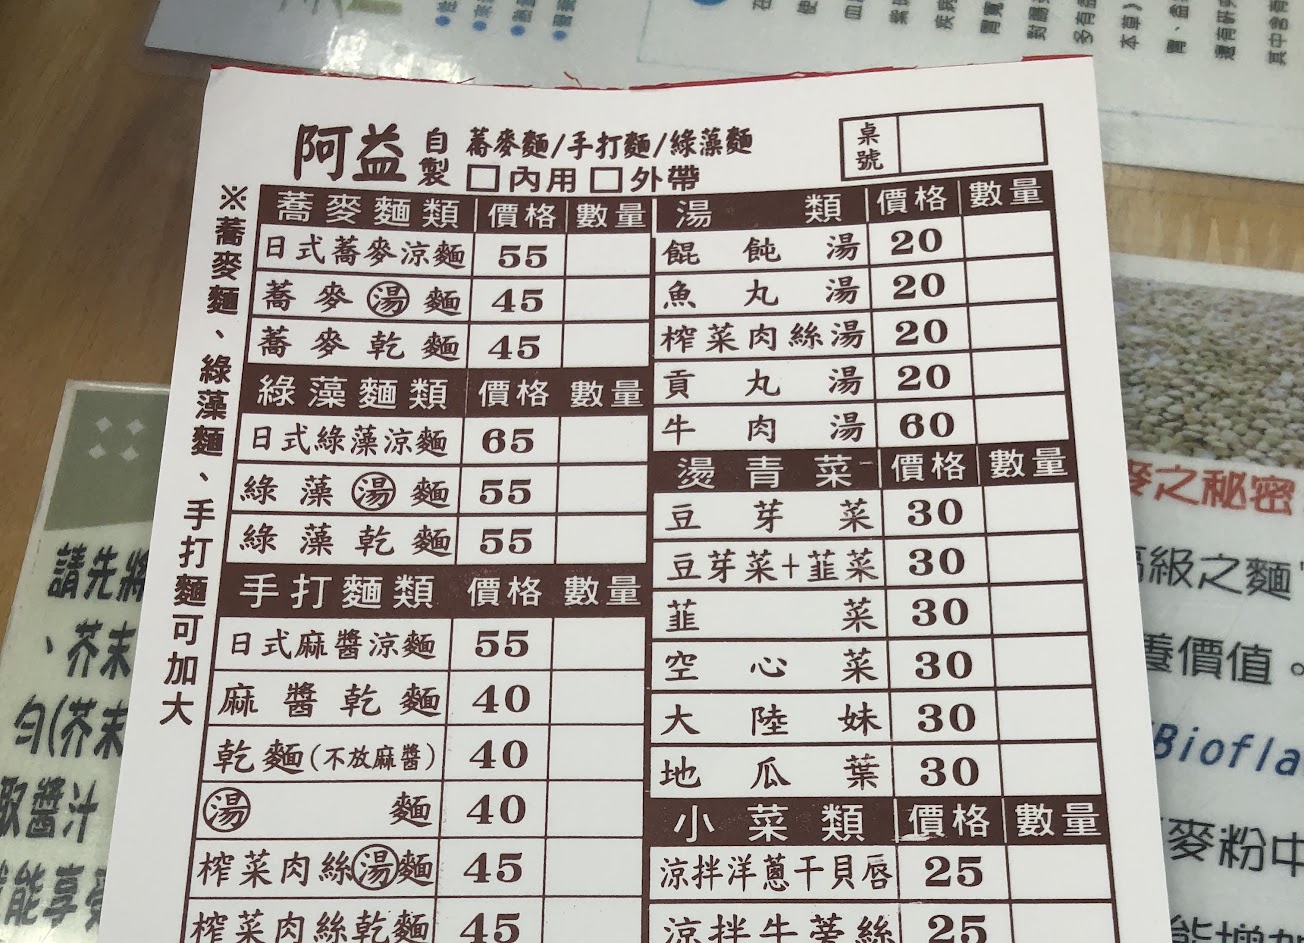 阿益 自製 蕎麥麵/手打麵/綠藻麵
□內用□外帶
桌號
※蕎麥麵、綠藻麵、手打麵可加大
蕎麥麵類 價格 數量
日式蕎麥涼麵 55
蕎麥湯麵 45
蕎麥乾麵 45
綠藻麵類 價格 數量
日式綠藻涼麵 65
綠藻湯麵 55
綠藻乾麵 55
手打麵類 價格 數量
日式麻醬涼麵 55
麻醬乾麵 40
乾麵(不放麻醬) 40
湯麵 40
榨菜肉絲湯麵 45
榨菜肉絲乾麵 45
湯類 價格 數量
餛飩湯 20
魚丸湯 20
榨菜肉絲湯 20
貢丸湯 20
牛肉湯 60
燙青菜 價格 數量
豆芽菜 30
豆芽菜+韮菜 30
韮菜 30
空心菜 30
大陸妹 30
地瓜葉 30
小菜類 價格 數量
涼拌洋蔥干貝唇 25
涼拌牛蒡絲 25
請先將
、芥末
勻(芥末
取醬汁
能享受
麥之秘密
高級之麵
養價值。
Biofla
麥粉中
能增加